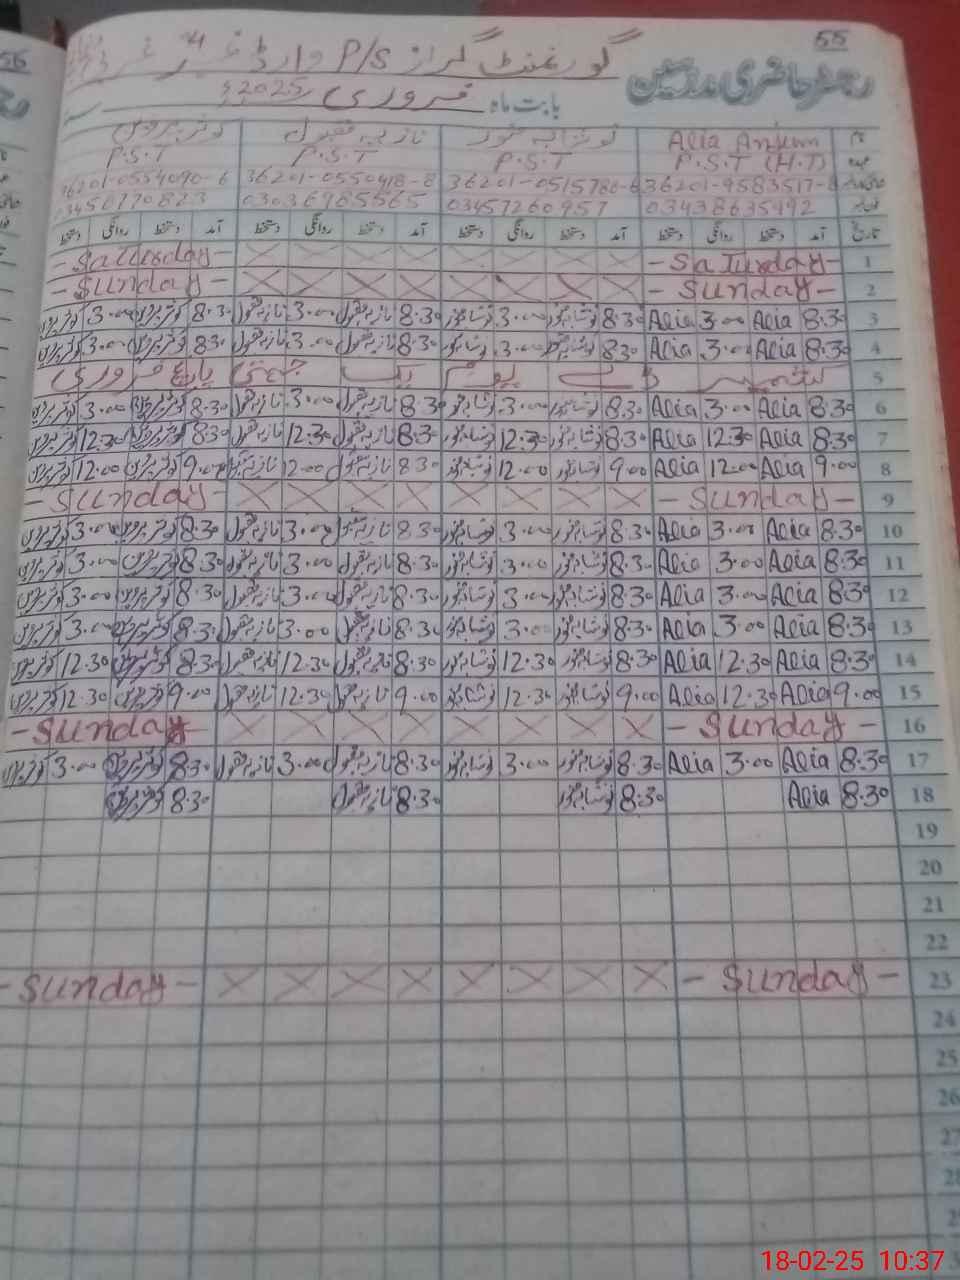 55
رجسٹر حاضری مدرسین
گورنمنٹ گرلز P/S وارڈ نمبر 4
بابت ماہ فروری 2025ء
نام Alia Anjum نوشابہ منور نازیہ مقبول کوثر پروین
عہدہ P.S.T (H.T) P.S.T P.S.T P.S.T
36201-9583517- 36201-0515786-6 36201-0550418-8 36201-0554090-6
03438635492 03457260957 03036965565 03456770823
تاریخ آمد دستخط روانگی دستخط آمد دستخط روانگی دستخط آمد دستخط روانگی دستخط آمد دستخط روانگی دستخط
1 - Saturday - × × × × × × × × - Saturday -
2 - Sunday - × × × × × × × × - Sunday -
3 8.30 Alia 3.00 Alia 8.30 نوشابہ منور 3.00 نوشابہ منور 8.30 نازیہ مقبول 3.00 نازیہ مقبول 8.30 کوثر پروین 3.00 کوثر پروین
4 8.30 Alia 3.00 Alia 8.30 نوشابہ منور 3.00 نوشابہ منور 8.30 نازیہ مقبول 3.00 نازیہ مقبول 8.30 کوثر پروین 3.00 کوثر پروین
5 کشمیر ڈے یوم چھٹی پانچ فروری
6 8.30 Alia 3.00 Alia 8.30 نوشابہ منور 3.00 نوشابہ منور 8.30 نازیہ مقبول 3.00 نازیہ مقبول 8.30 کوثر پروین 3.00 کوثر پروین
7 8.30 Alia 12.30 Alia 8.30 نوشابہ منور 12.30 نوشابہ منور 8.30 نازیہ مقبول 12.30 نازیہ مقبول 8.30 کوثر پروین 12.30 کوثر پروین
8 9.00 Alia 12.00 Alia 9.00 نوشابہ منور 12.00 نوشابہ منور 8.30 نازیہ مقبول 12.00 نازیہ مقبول 9.00 کوثر پروین 12.00 کوثر پروین
9 - Sunday - × × × × × × × × - Sunday -
10 8.30 Alia 3.00 Alia 8.30 نوشابہ منور 3.00 نوشابہ منور 8.30 نازیہ مقبول 3.00 نازیہ مقبول 8.30 کوثر پروین 3.00 کوثر پروین
11 8.30 Alia 3.00 Alia 8.30 نوشابہ منور 3.00 نوشابہ منور 8.30 نازیہ مقبول 3.00 نازیہ مقبول 8.30 کوثر پروین 3.00 کوثر پروین
12 8.30 Alia 3.00 Alia 8.30 نوشابہ منور 3.00 نوشابہ منور 8.30 نازیہ مقبول 3.00 نازیہ مقبول 8.30 کوثر پروین 3.00 کوثر پروین
13 8.30 Alia 3.00 Alia 8.30 نوشابہ منور 3.00 نوشابہ منور 8.30 نازیہ مقبول 3.00 نازیہ مقبول 8.30 کوثر پروین 3.00 کوثر پروین
14 8.30 Alia 12.30 Alia 8.30 نوشابہ منور 12.30 نوشابہ منور 8.30 نازیہ مقبول 12.30 نازیہ مقبول 8.30 کوثر پروین 12.30 کوثر پروین
15 9.00 Alia 12.30 Alia 9.00 نوشابہ منور 12.30 نوشابہ منور 9.00 نازیہ مقبول 12.30 نازیہ مقبول 9.00 کوثر پروین 12.30 کوثر پروین
16 - Sunday - × × × × × × × × - Sunday -
17 8.30 Alia 3.00 Alia 8.30 نوشابہ منور 3.00 نوشابہ منور 8.30 نازیہ مقبول 3.00 نازیہ مقبول 8.30 کوثر پروین 3.00 کوثر پروین
18 8.30 Alia 8.30 نوشابہ منور 8.30 نازیہ مقبول 8.30 کوثر پروین
19
20
21
22
23 - Sunday - × × × × × × × × - Sunday -
24
25
26
27
18-02-25 10:37
56